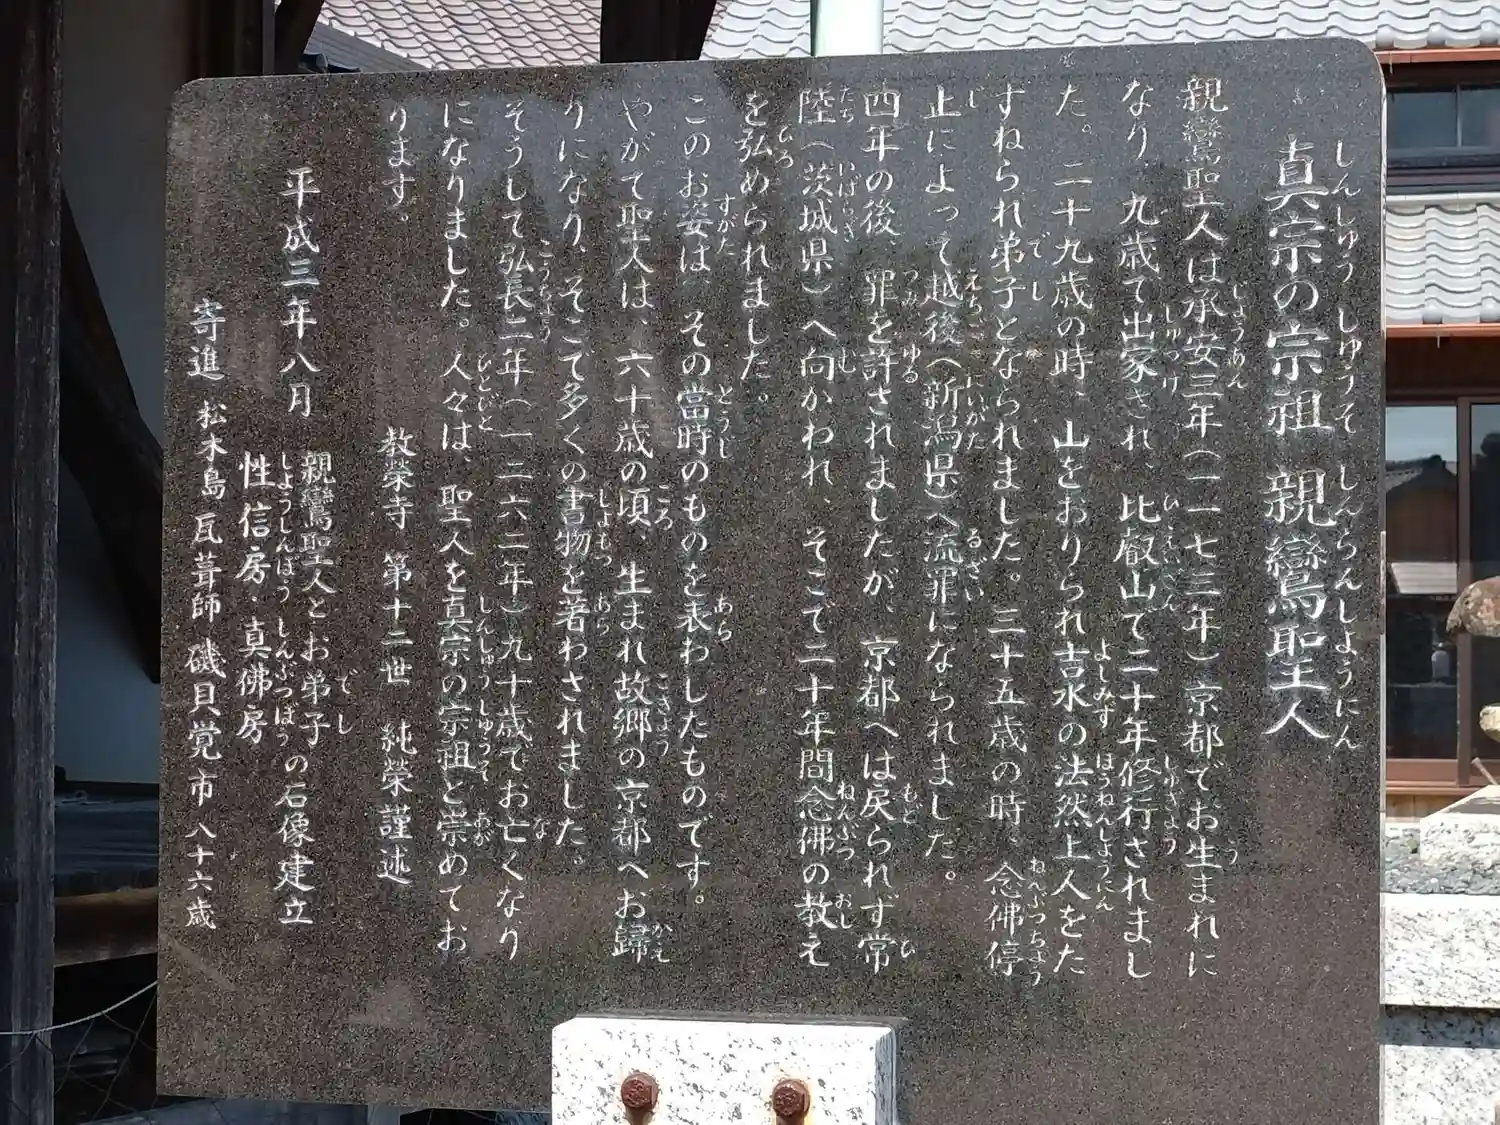 真宗の宗祖 親鸞聖人
親鸞聖人は承安三年(一一七三年)京都でお生まれに
なり、九歳で出家され、比叡山で二十年修行されまし
た。二十九歳の時、山をおりられ吉水の法然上人をた
ずねられ弟子となられました。三十五歳の時、念佛停
止によって越後(新潟県)へ流罪になられました。
四年の後、罪を許されましたが、京都へは戻られず常
陸(茨城県)へ向かわれ、そこで二十年間念佛の教え
を弘められました。
このお姿は、その當時のものを表わしたものです。
やがて聖人は、六十歳の頃、生まれ故郷の京都へお歸
りになり、そこで多くの書物を著わされました。
そうして弘長二年(一二六二年)九十歳でお亡くなり
になりました。人々は、聖人を真宗の宗祖と崇めてお
ります。
教榮寺 第十二世 純榮謹述
平成三年八月 親鸞聖人とお弟子の石像建立
性信房・真佛房
寄進 松木島 瓦葺師 磯貝覚市 八十六歳